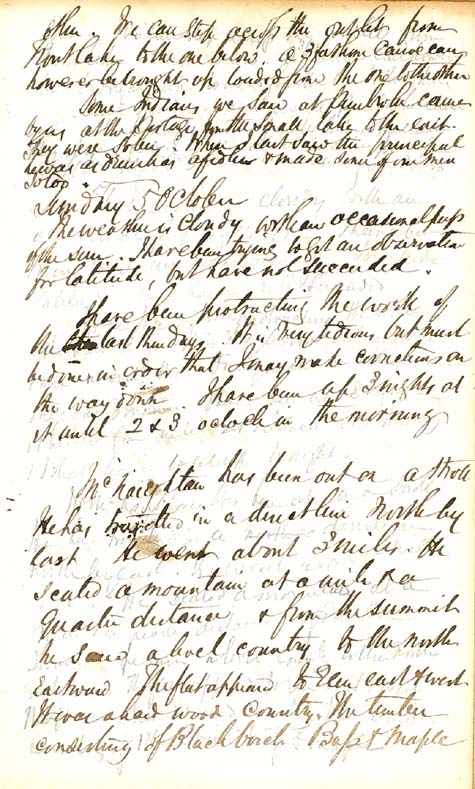 then. We can step across the outlet from
Trout Lake to the one below. a 3 fathom canoe can
however be brought up loaded from the one to the other
Some Indians we saw at Pembroke came
by us at the Portage from the small lake to the east.
They were sober. When I last saw the principal
he was as drunk as a fiddler & made some of our men
so too.
Sunday 5 October
The weather is cloudy with an occasional peep
of the sun. I have been trying to get an observation
for latitude, but have not succeeded.
I have been protracting the work of
the last three days. It is very tedious but must
be done in order that I may make corrections on
the way down. I have been up 3 nights at
it until 2 & 3 oclock in the morning
McNaughtan has been out on a stroll
He has travelled in a direct line North by
East He went about 3 miles. He
scaled a mountain at a mile & a
quarter distance & from the summit
he saw a level country to the North
Eastward The flat appeared to run east & west
It was a hard wood country. The timber
consisting of Black birch Bass & Maple